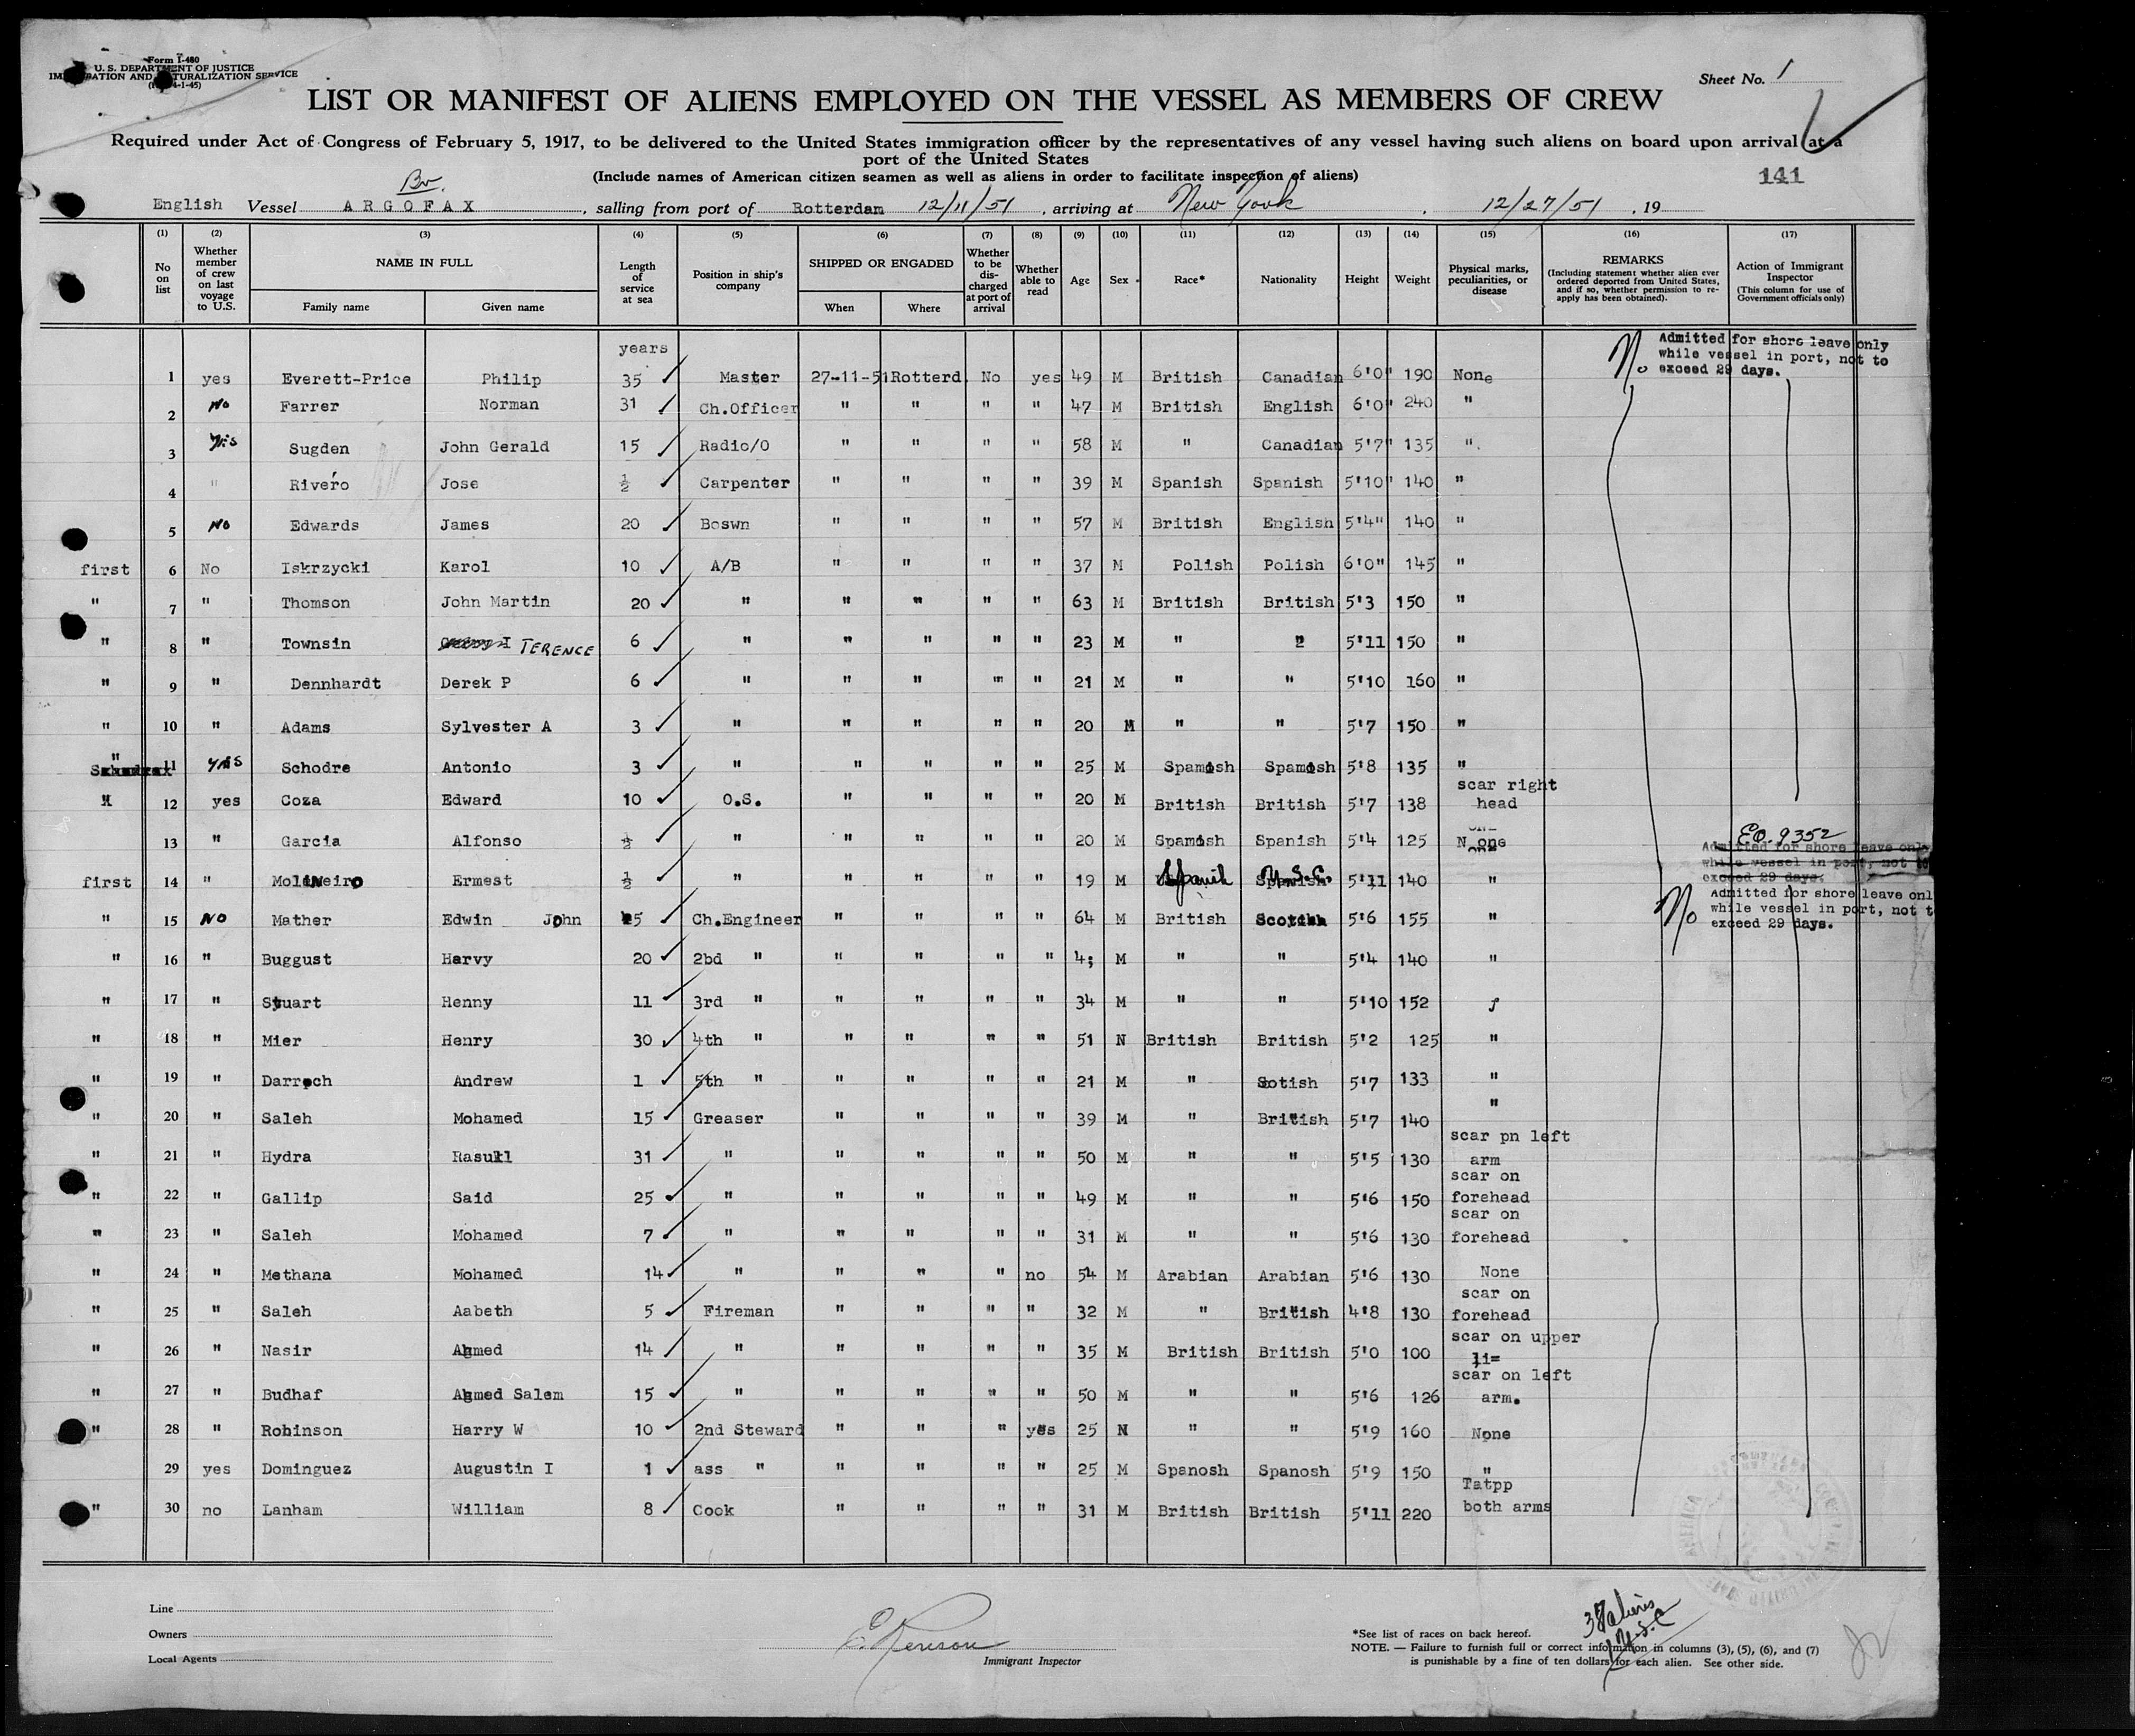 Form I-480
U. S. DEPARTMENT OF JUSTICE
IMMIGRATION AND NATURALIZATION SERVICE
4-1-45)
Sheet No. 1
LIST OR MANIFEST OF ALIENS EMPLOYED ON THE VESSEL AS MEMBERS OF CREW
Required under Act of Congress of February 5, 1917, to be delivered to the United States immigration officer by the representatives of any vessel having such aliens on board upon arrival at a
port of the United States
(Include names of American citizen seamen as well as aliens in order to facilitate inspection of aliens)
141
Br.
English Vessel ARGOFAX, salling from port of Rotterdam 12/11/51, arriving at New York, 12/27/51, 19
(1) (2) (3) (4) (5) (6) (7) (8) (9) (10) (11) (12) (13) (14) (15) (16) (17)
No on list Whether member of crew on last voyage to U.S. NAME IN FULL Family name Given name Length of service at sea Position in ship's company SHIPPED OR ENGADED When Where Whether to be discharged at port of arrival Whether able to read Age Sex Race* Nationality Height Weight Physical marks, peculiarities, or disease REMARKS (Including statement whether alien ever ordered deported from United States, and if so, whether permission to re-apply has been obtained). Action of Immigrant Inspector (This column for use of Government officials only)
years
No Admitted for shore leave only
while vessel in port, not to
exceed 29 days.
1 yes Everett-Price Philip 35 Master 27-11-51 Rotterd. No yes 49 M British Canadian 6'0" 190 None
2 No Farrer Norman 31 Ch.Officer " " " " 47 M British English 6'0" 240 "
3 Yes Sugden John Gerald 15 Radio/O " " " " 58 M " Canadian 5'7" 135 "
4 " Rivero Jose ½ Carpenter " " " " 39 M Spanish Spanish 5'10" 140 "
5 No Edwards James 20 Boswn " " " " 57 M British English 5'4" 140 "
first 6 No Iskrzycki Karol 10 A/B " " " " 37 M Polish Polish 6'0" 145 "
" 7 " Thomson John Martin 20 " " " " " 63 M British British 5'3 150 "
" 8 " Townsin I TERENCE 6 " " " " " 23 M " " 5'11 150 "
" 9 " Dennhardt Derek P 6 " " " " " 21 M " " 5'10 160 "
" 10 " Adams Sylvester A 3 " " " " " 20 M " " 5'7 150 "
" 11 yes Schodre Antonio 3 " " " " " 25 M Spamish Spamish 5'8 135 "
" 12 yes Coza Edward 10 O.S. " " " " 20 M British British 5'7 138 scar right head
13 " Garcia Alfonso ½ " " " " " 20 M Spamish Spanish 5'4 125 None
EO. 9352
Admitted for shore leave only
while vessel in port, not to
exceed 29 days.
first 14 " Molineiro Ermest ½ " " " " " 19 M Spanish U.S.C. 5'11 140 "
No Admitted for shore leave onl
while vessel in port, not t
exceed 29 days.
" 15 NO Mather Edwin John 25 Ch.Engineer " " " " 64 M British Scotish 5'6 155 "
" 16 " Buggust Harvy 20 2bd " " " " " 4; M " " 5'4 140 "
" 17 " Stuart Henny 11 3rd " " " " " 34 M " " 5'10 152
" 18 " Mier Henry 30 4th " " " " " 51 N British British 5'2 125 "
" 19 " Darroch Andrew 1 5th " " " " " 21 M " Scotish 5'7 133 "
" 20 " Saleh Mohamed 15 Greaser " " " " 39 M " British 5'7 140 "
" 21 " Hydra Rasull 31 " " " " " 50 M " " 5'5 130 scar pn left arm
" 22 " Gallip Said 25 " " " " " 49 M " " 5'6 150 scar on forehead
" 23 " Saleh Mohamed 7 " " " " " 31 M " " 5'6 130 scar on forehead
" 24 " Methana Mohamed 14 " " " " no 54 M Arabian Arabian 5'6 130 None
" 25 " Saleh Aabeth 5 Fireman " " " " 32 M " British 4'8 130 scar on forehead
" 26 " Nasir Ahmed 14 " " " " " 35 M British British 5'0 100 scar on upper li=
" 27 " Budhaf Ahmed Salem 15 " " " " " 50 M " " 5'6 126 scar on left arm.
" 28 " Robinson Harry W 10 2nd Steward " " " yes 25 N " " 5'9 160 None
29 yes Dominguez Augustin I 1 ass " " " " " 25 M Spanosh Spanosh 5'9 150 "
" 30 no Lanham William 8 Cook " " " " 31 M British British 5'11 220 Tatpp both arms
Line
Owners
Local Agents
Immigrant Inspector
*See list of races on back hereof.
NOTE. — Failure to furnish full or correct information in columns (3), (5), (6), and (7)
is punishable by a fine of ten dollars for each alien. See other side.
aliens
1 U.S.C